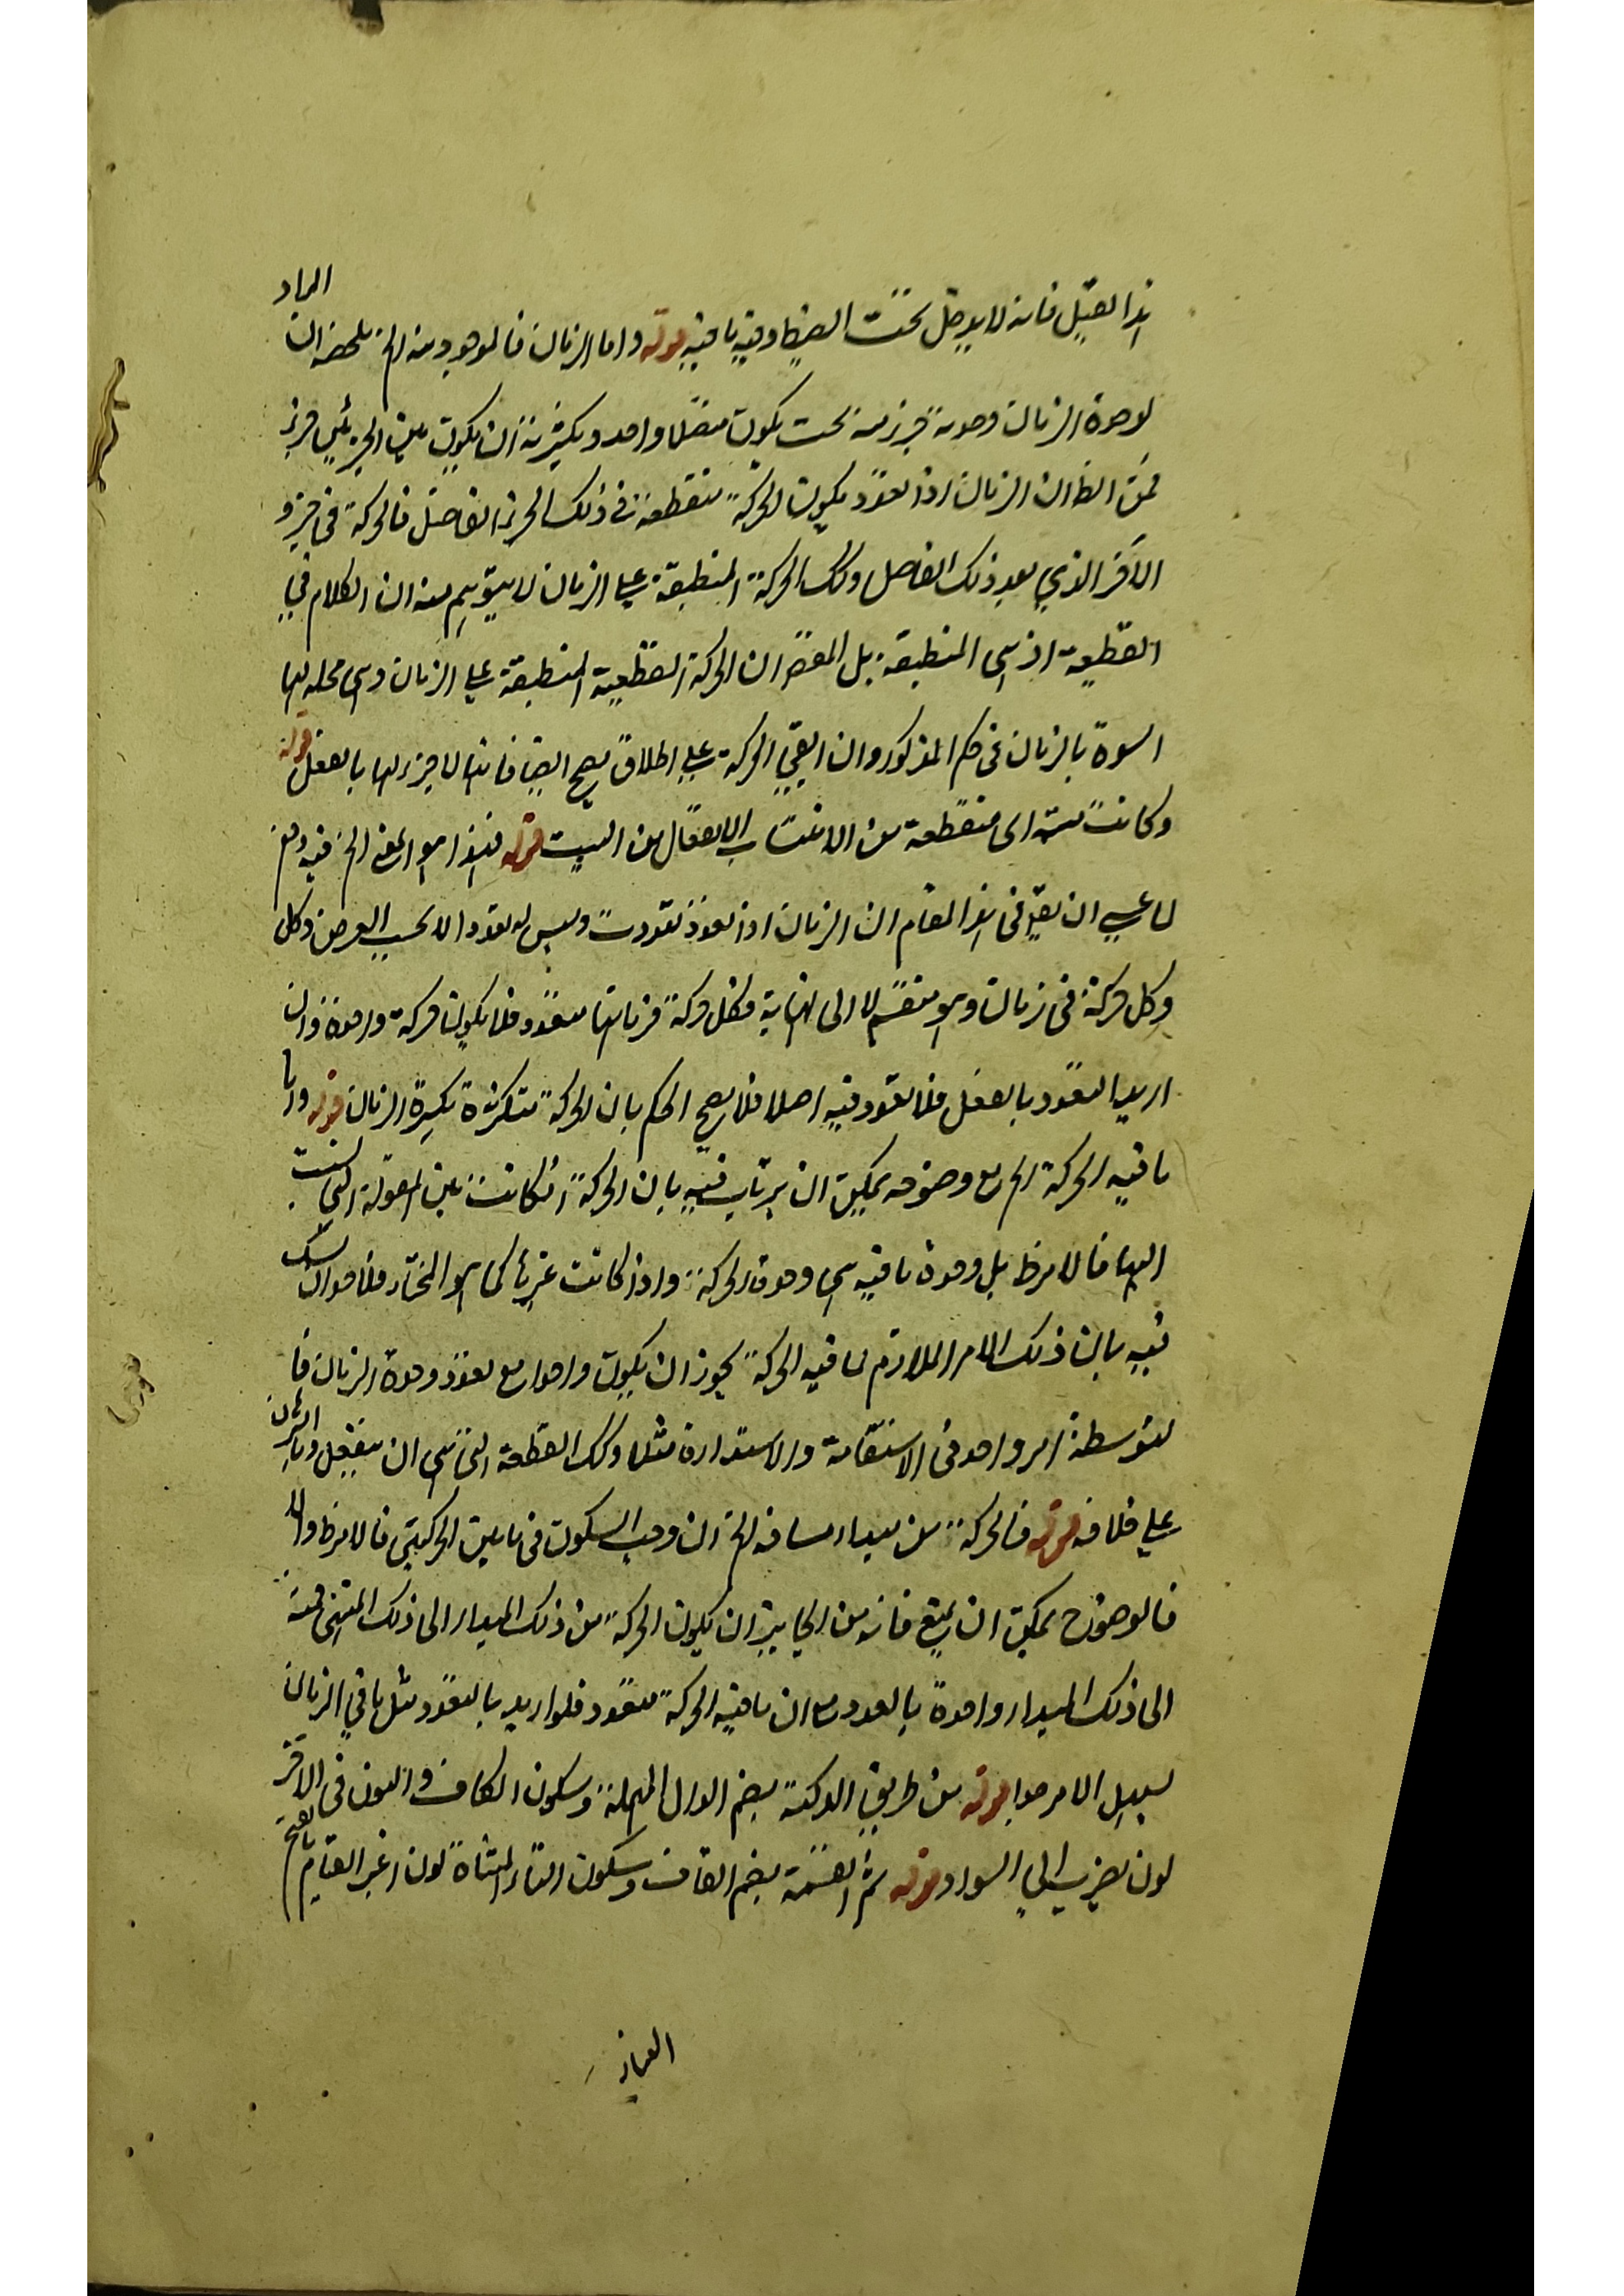 هذا القبيل فانه لا يدخل تحت الضبط وفيه ما فيه قوله واما الزمان فالموجود منه الخ ملخصه ان المراد
لوحدة الزمان وحدة جزء منه بحيث يكون متصلا واحدا وبكثرته ان يكون بين الجزئين جزء
فمن الظ ان الزمان اذا تعدد يكون الحركة منقطعة في ذلك الجزء الفاصل فالحركة في جزء
الآخر الذي بعد ذلك الفاصل وتلك الحركة المنطبقة على الزمان لا يتوهم منه ان الكلام في
القطعية اذ هي المنطبقة بل المقص ان الحركة القطعية المنطبقة على الزمان وهي محله لها
اسوة بالزمان في حكم المذكور وان ابقي الحركة على اطلاق يصح ايضا فانها لا جزء لها بالفعل قوله
وكانت متمة اى منقطعة من الانتساب الانفعال من البت قوله فهذا هو المعنى الخ فيه دفع
لما عسى ان يقال في هذا المقام ان الزمان اذا تعدد تعددت وليس له تعدد الا بحسب العرض وكل
وكل حركة في زمان وهو منقسم لا الى نهاية فكل حركة فزمانها متعدد فلا يكون حركة واحدة وان
اريد التعدد بالفعل فلا تعدد فيه اصلا فلا يصح الحكم بان الحركة متكثرة بكثرة الزمان قوله واما
ما فيه الحركة الخ مع وضوحه يمكن ان يرتاب فيه بان الحركة ان كانت عين المقولة التي نسبت
اليها فالامر ظ بل وحدة ما فيه هي وحدة الحركة واذا كانت غيرها كما هو المختار فلا حد ان يشك
فيه بان ذلك الامر اللازم لما فيه الحركة يجوز ان يكون واحدا مع تعدد وحدة الزمان فا
لتوسطة امر واحد في الاستقامة والاستدارة مثلا وتلك القطعة التي هي ان ينفعل وبالبرهان
على خلافه قوله فالحركة من مبدا، مسافة الخ ان وجب السكون في ما بين الحركتين فالامر ظ والا
فالوضوح يمكن ان يمنع فانه من الجايز ان يكون الحركة من ذلك المبدا الى ذلك المنتهى فمنه
الى ذلك المبدا، واحدة بالعدد مع ان ما فيه الحركة متعدد فلو اريد بالتعدد مثل ما في الزمان
لسهل الامر جدا قوله من طريق الدكنة بضم الدال المهملة وسكون الكاف والنون في الآخر
لون يضرب الى السواد قوله ثم القتمة بضم القاف وسكون التاء المثناة لون اغبر القتام بالفتح
الغبار